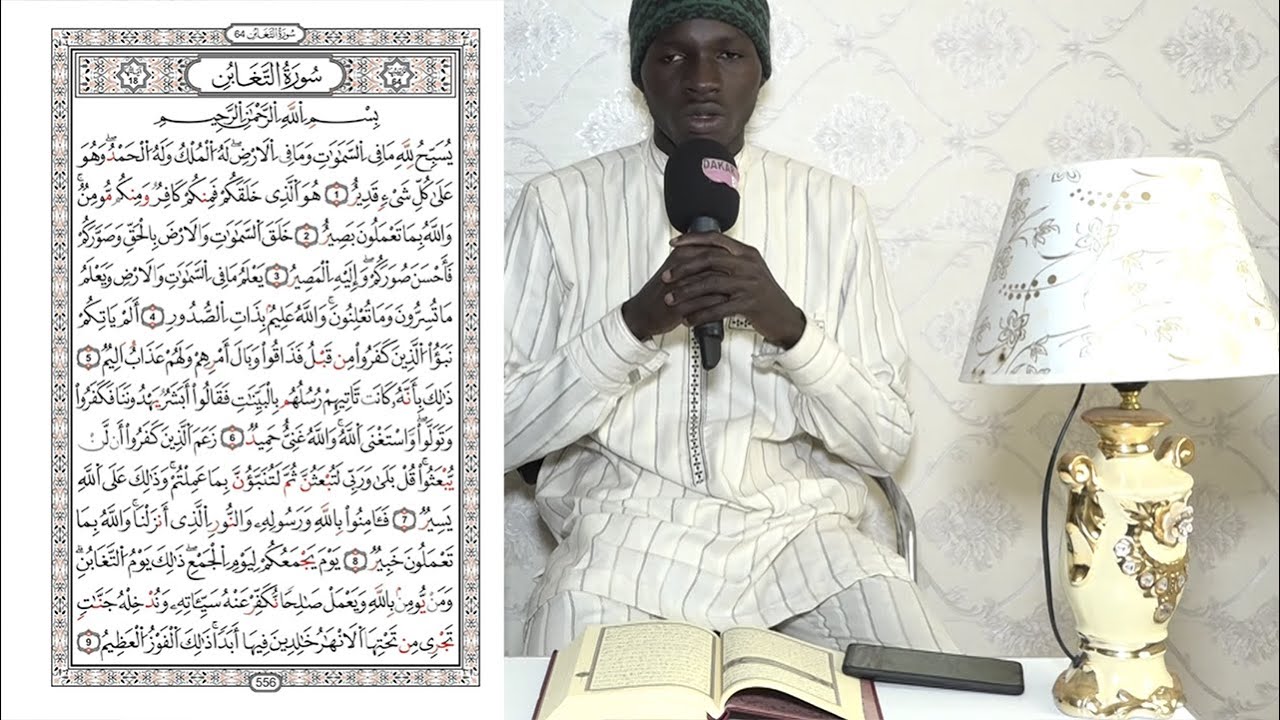 سُورَةُ التَّغَابُنِ 64
سُورَةُ التَّغَابُنِ
18
بِسْمِ اِللَّهِ اِلرَّحْمَٰنِ اِلرَّحِيمِ
يُسَبِّحُ لِلَّهِ مَا فِے اِلسَّمَٰوَٰتِ وَمَا فِے اِلَارْضِ لَهُ اُلْمُلْكُ وَلَهُ اُلْحَمْدُ وَهُوَ
عَلَىٰ كُلِّ شَےْءٍ قَدِيرٌ 1 هُوَ اَلَّذِے خَلَقَكُمْ فَمِنكُمْ كَافِرٌ وَمِنكُم مُّومِنٌ
وَاللَّهُ بِمَا تَعْمَلُونَ بَصِيرٌ 2 خَلَقَ اَلسَّمَٰوَٰتِ وَالَارْضَ بِالْحَقِّ وَصَوَّرَكُمْ
فَأَحْسَنَ صُوَرَكُمْ وَإِلَيْهِ اِلْمَصِيرُ 3 يَعْلَمُ مَا فِے اِلسَّمَٰوَٰتِ وَالَارْضِ وَيَعْلَمُ
مَا تُسِرُّونَ وَمَا تُعْلِنُونَ وَاللَّهُ عَلِيمٌ بِذَاتِ اِلصُّدُورِ 4 أَلَمْ يَاتِكُمْ
نَبَؤُاْ اُلَّذِينَ كَفَرُواْ مِن قَبْلُ فَذَاقُواْ وَبَالَ أَمْرِهِمْ وَلَهُمْ عَذَابٌ اَلِيمٌ 5
ذَٰلِكَ بِأَنَّهُۥ كَانَت تَّاتِيهِمْ رُسُلُهُم بِالْبَيِّنَٰتِ فَقَالُواْ أَبَشَرٌ يَهْدُونَنَا فَكَفَرُواْ
وَتَوَلَّواْ وَّاسْتَغْنَى اَللَّهُ وَاللَّهُ غَنِيٌّ حَمِيدٌ 6 زَعَمَ اَلَّذِينَ كَفَرُواْ أَن لَّنْ
يُّبْعَثُواْ قُلْ بَلَىٰ وَرَبِّے لَتُبْعَثُنَّ ثُمَّ لَتُنَبَّؤُنَّ بِمَا عَمِلْتُمْ وَذَٰلِكَ عَلَى اَللَّهِ
يَسِيرٌ 7 فَـَٔامِنُواْ بِاللَّهِ وَرَسُولِهِۦ وَالنُّورِ اِلَّذِے أَنزَلْنَا وَاللَّهُ بِمَا
تَعْمَلُونَ خَبِيرٌ 8 يَوْمَ يَجْمَعُكُمْ لِيَوْمِ اِلْجَمْعِ ذَٰلِكَ يَوْمُ اُلتَّغَابُنِ
وَمَنْ يُّومِنۢ بِاللَّهِ وَيَعْمَلْ صَٰلِحاً نُّكَفِّرْ عَنْهُ سَيِّـَٔاتِهِۦ وَنُدْخِلْهُ جَنَّٰتٍ
تَجْرِے مِن تَحْتِهَا اَلَانْهَٰرُ خَٰلِدِينَ فِيهَا أَبَداً ذَٰلِكَ اَلْفَوْزُ اُلْعَظِيمُ 9
556
DAKAR